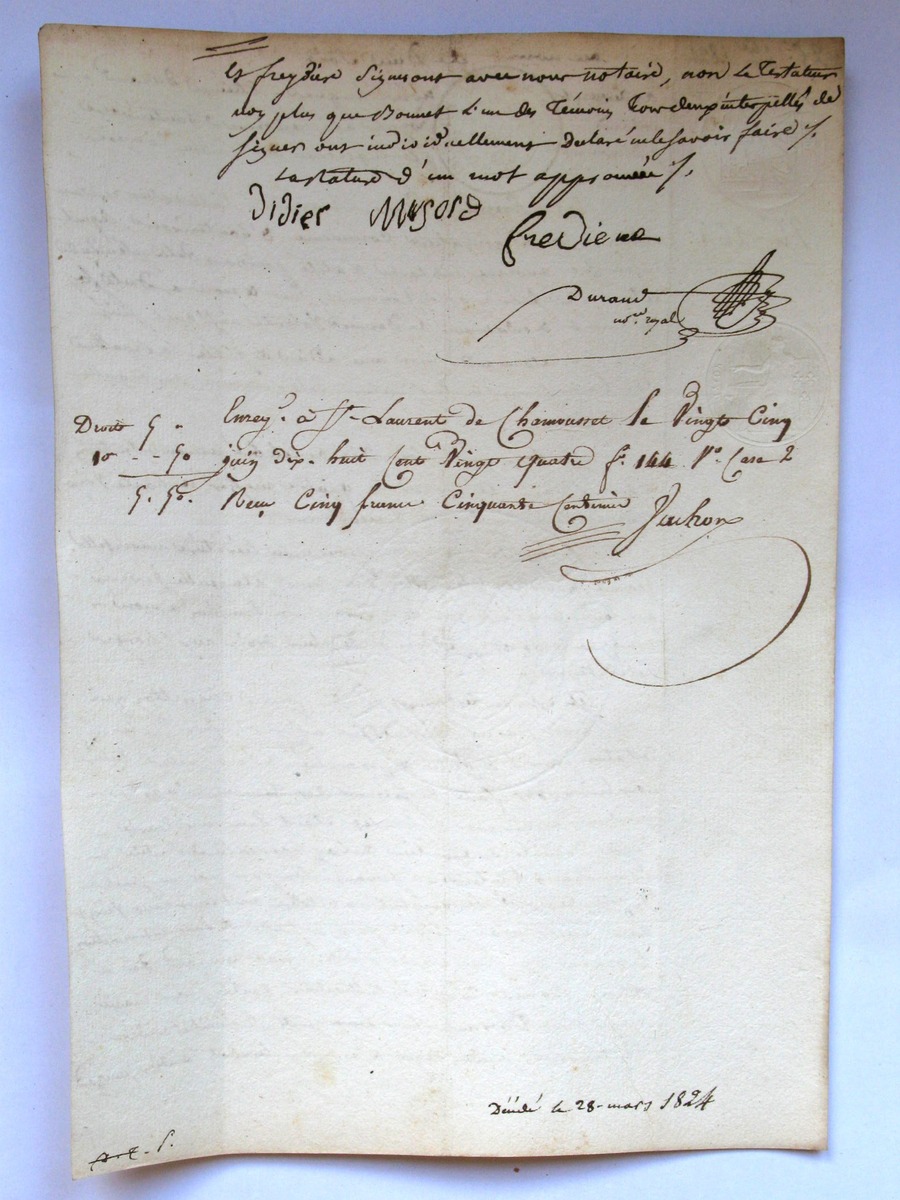 et freydière Signeront avec nous notaire, non Le Testateur
non plus que Bonnet L'un des Témoin Tous deux interpellés de
signer ont individuellement Declaré ne le savoir faire ⁒.
La rature d'un mot approuvée ⁒.
Didier
Frediere
Durand
n.re royal
Droits 5 "
10e - - 50
5. 50.
Enreg.é à St. Laurent de Chamousset le Vingt Cinq
juin dix-huit Cent Vingt quatre f.o 144 V.o Case 2
Reçu Cinq francs Cinquante Centimes
Décédé le 28 mars 1824